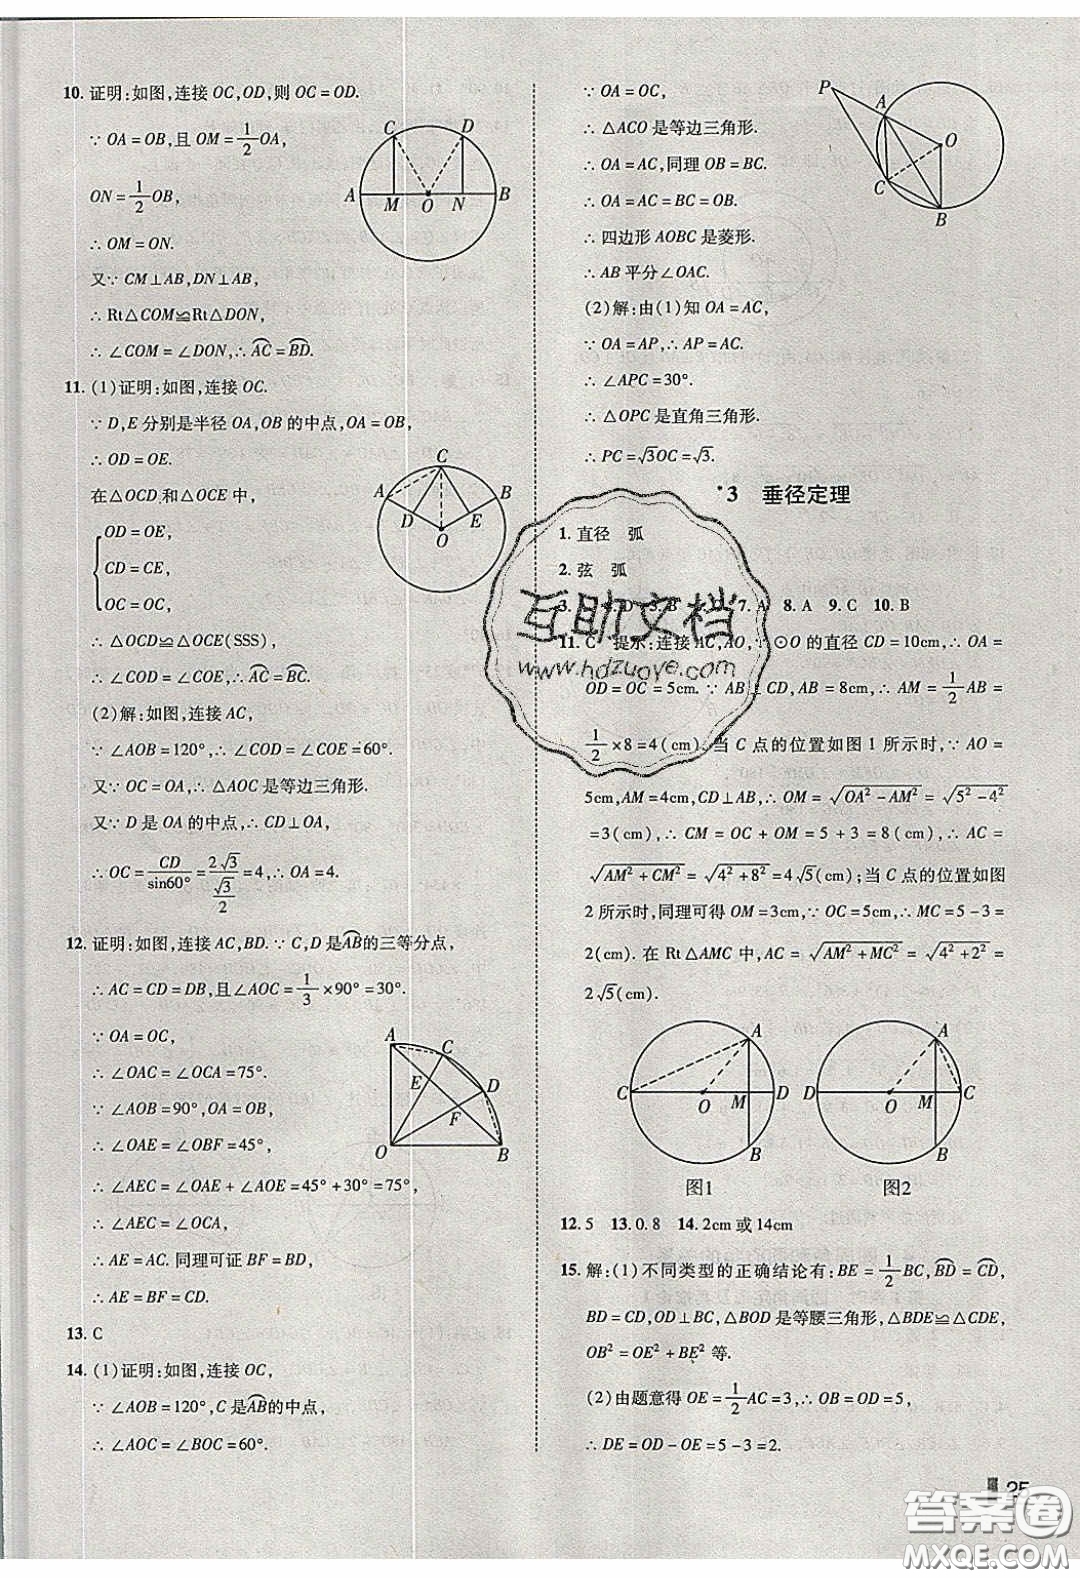 10. 证明:如图,连接 OC,OD,则 OC = OD.
∵ OA = OB,且 OM = 1/2 OA,
ON = 1/2 OB,
∴ OM = ON.
又∵ CM⊥AB,DN⊥AB,
∴ Rt△COM≌Rt△DON,
∴ ∠COM = ∠DON,∴ ⌒AC = ⌒BD.
C D A M O N B
11. (1)证明:如图,连接 OC.
∵ D,E 分别是半径 OA,OB 的中点,OA = OB,
∴ OD = OE.
在△OCD 和△OCE 中,
OD = OE,
CD = CE,
OC = OC,
∴ △OCD≌△OCE(SSS).
∴ ∠COD = ∠COE,∴ ⌒AC = ⌒BC.
C A B D E O
(2)解:如图,连接 AC,
∵ ∠AOB = 120°,∴ ∠COD = ∠COE = 60°.
又∵ OC = OA,∴ △AOC 是等边三角形.
又∵ D 是 OA 的中点,∴ CD⊥OA,
∴ OC = CD/sin60° = 2√3/(√3/2) = 4,∴ OA = 4.
12. 证明:如图,连接 AC,BD.∵ C,D 是⌒AB的三等分点,
∴ AC = CD = DB,且∠AOC = 1/3 × 90° = 30°.
∵ OA = OC,
∴ ∠OAC = ∠OCA = 75°.
∵ ∠AOB = 90°,OA = OB,
∴ ∠OAE = ∠OBF = 45°,
∴ ∠AEC = ∠OAE + ∠AOE = 45° + 30° = 75°,
∴ ∠AEC = ∠OCA,
∴ AE = AC. 同理可证 BF = BD,
∴ AE = BF = CD.
A C E D F O B
13. C
14. (1)证明:如图,连接 OC,
∵ ∠AOB = 120°,C 是⌒AB的中点,
∴ ∠AOC = ∠BOC = 60°.
∵ OA = OC,
∴ △ACO 是等边三角形.
∴ OA = AC,同理 OB = BC.
∴ OA = AC = BC = OB.
∴ 四边形 AOBC 是菱形.
∴ AB 平分∠OAC.
(2)解:由(1)知 OA = AC,
∵ OA = AP,∴ AP = AC.
∴ ∠APC = 30°.
∴ △OPC 是直角三角形.
∴ PC = √3OC = √3.
P A O C B
*3 垂径定理
1. 直径 弧
2. 弦 弧
7. A 8. A 9. C 10. B
11. C 提示:连接 AC,AO,∵ ⊙O 的直径 CD = 10cm,∴ OA =
OD = OC = 5cm. ∵ AB⊥CD, AB = 8cm,∴ AM = 1/2 AB =
1/2 × 8 = 4(cm). 当 C 点的位置如图 1 所示时,∵ AO =
5cm,AM = 4cm,CD⊥AB,∴ OM = √(OA² − AM²) = √(5² − 4²)
= 3(cm),∴ CM = OC + OM = 5 + 3 = 8(cm),∴ AC =
√(AM² + CM²) = √(4² + 8²) = 4√5(cm);当 C 点的位置如图
2 所示时,同理可得 OM = 3cm,∵ OC = 5cm,∴ MC = 5 − 3 =
2(cm). 在 Rt△AMC 中,AC = √(AM² + MC²) = √(4² + 2²) =
2√5(cm).
A C O M D B 图1
A D O M C B 图2
12. 5 13. 0.8 14. 2cm 或 14cm
15. 解:(1)不同类型的正确结论有:BE = 1/2 BC,⌒BD = ⌒CD,
BD = CD,OD⊥BC,△BOD 是等腰三角形,△BDE≌△CDE,
OB² = OE² + BE² 等.
(2)由题意得 OE = 1/2 AC = 3,∴ OB = OD = 5,
∴ DE = OD − OE = 5 − 3 = 2.
25
互助文档
www.hdzuoye.com
答案圈
MXQE.COM